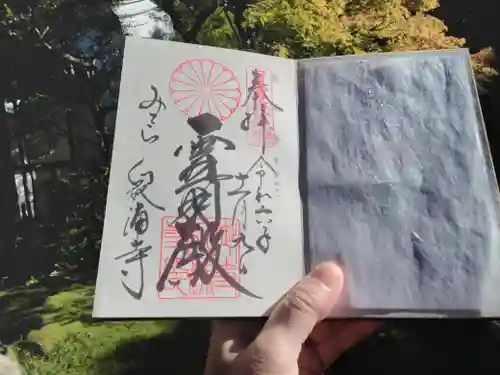 奉拝 令和六年
十一月
霊明殿
みてら 泉涌寺